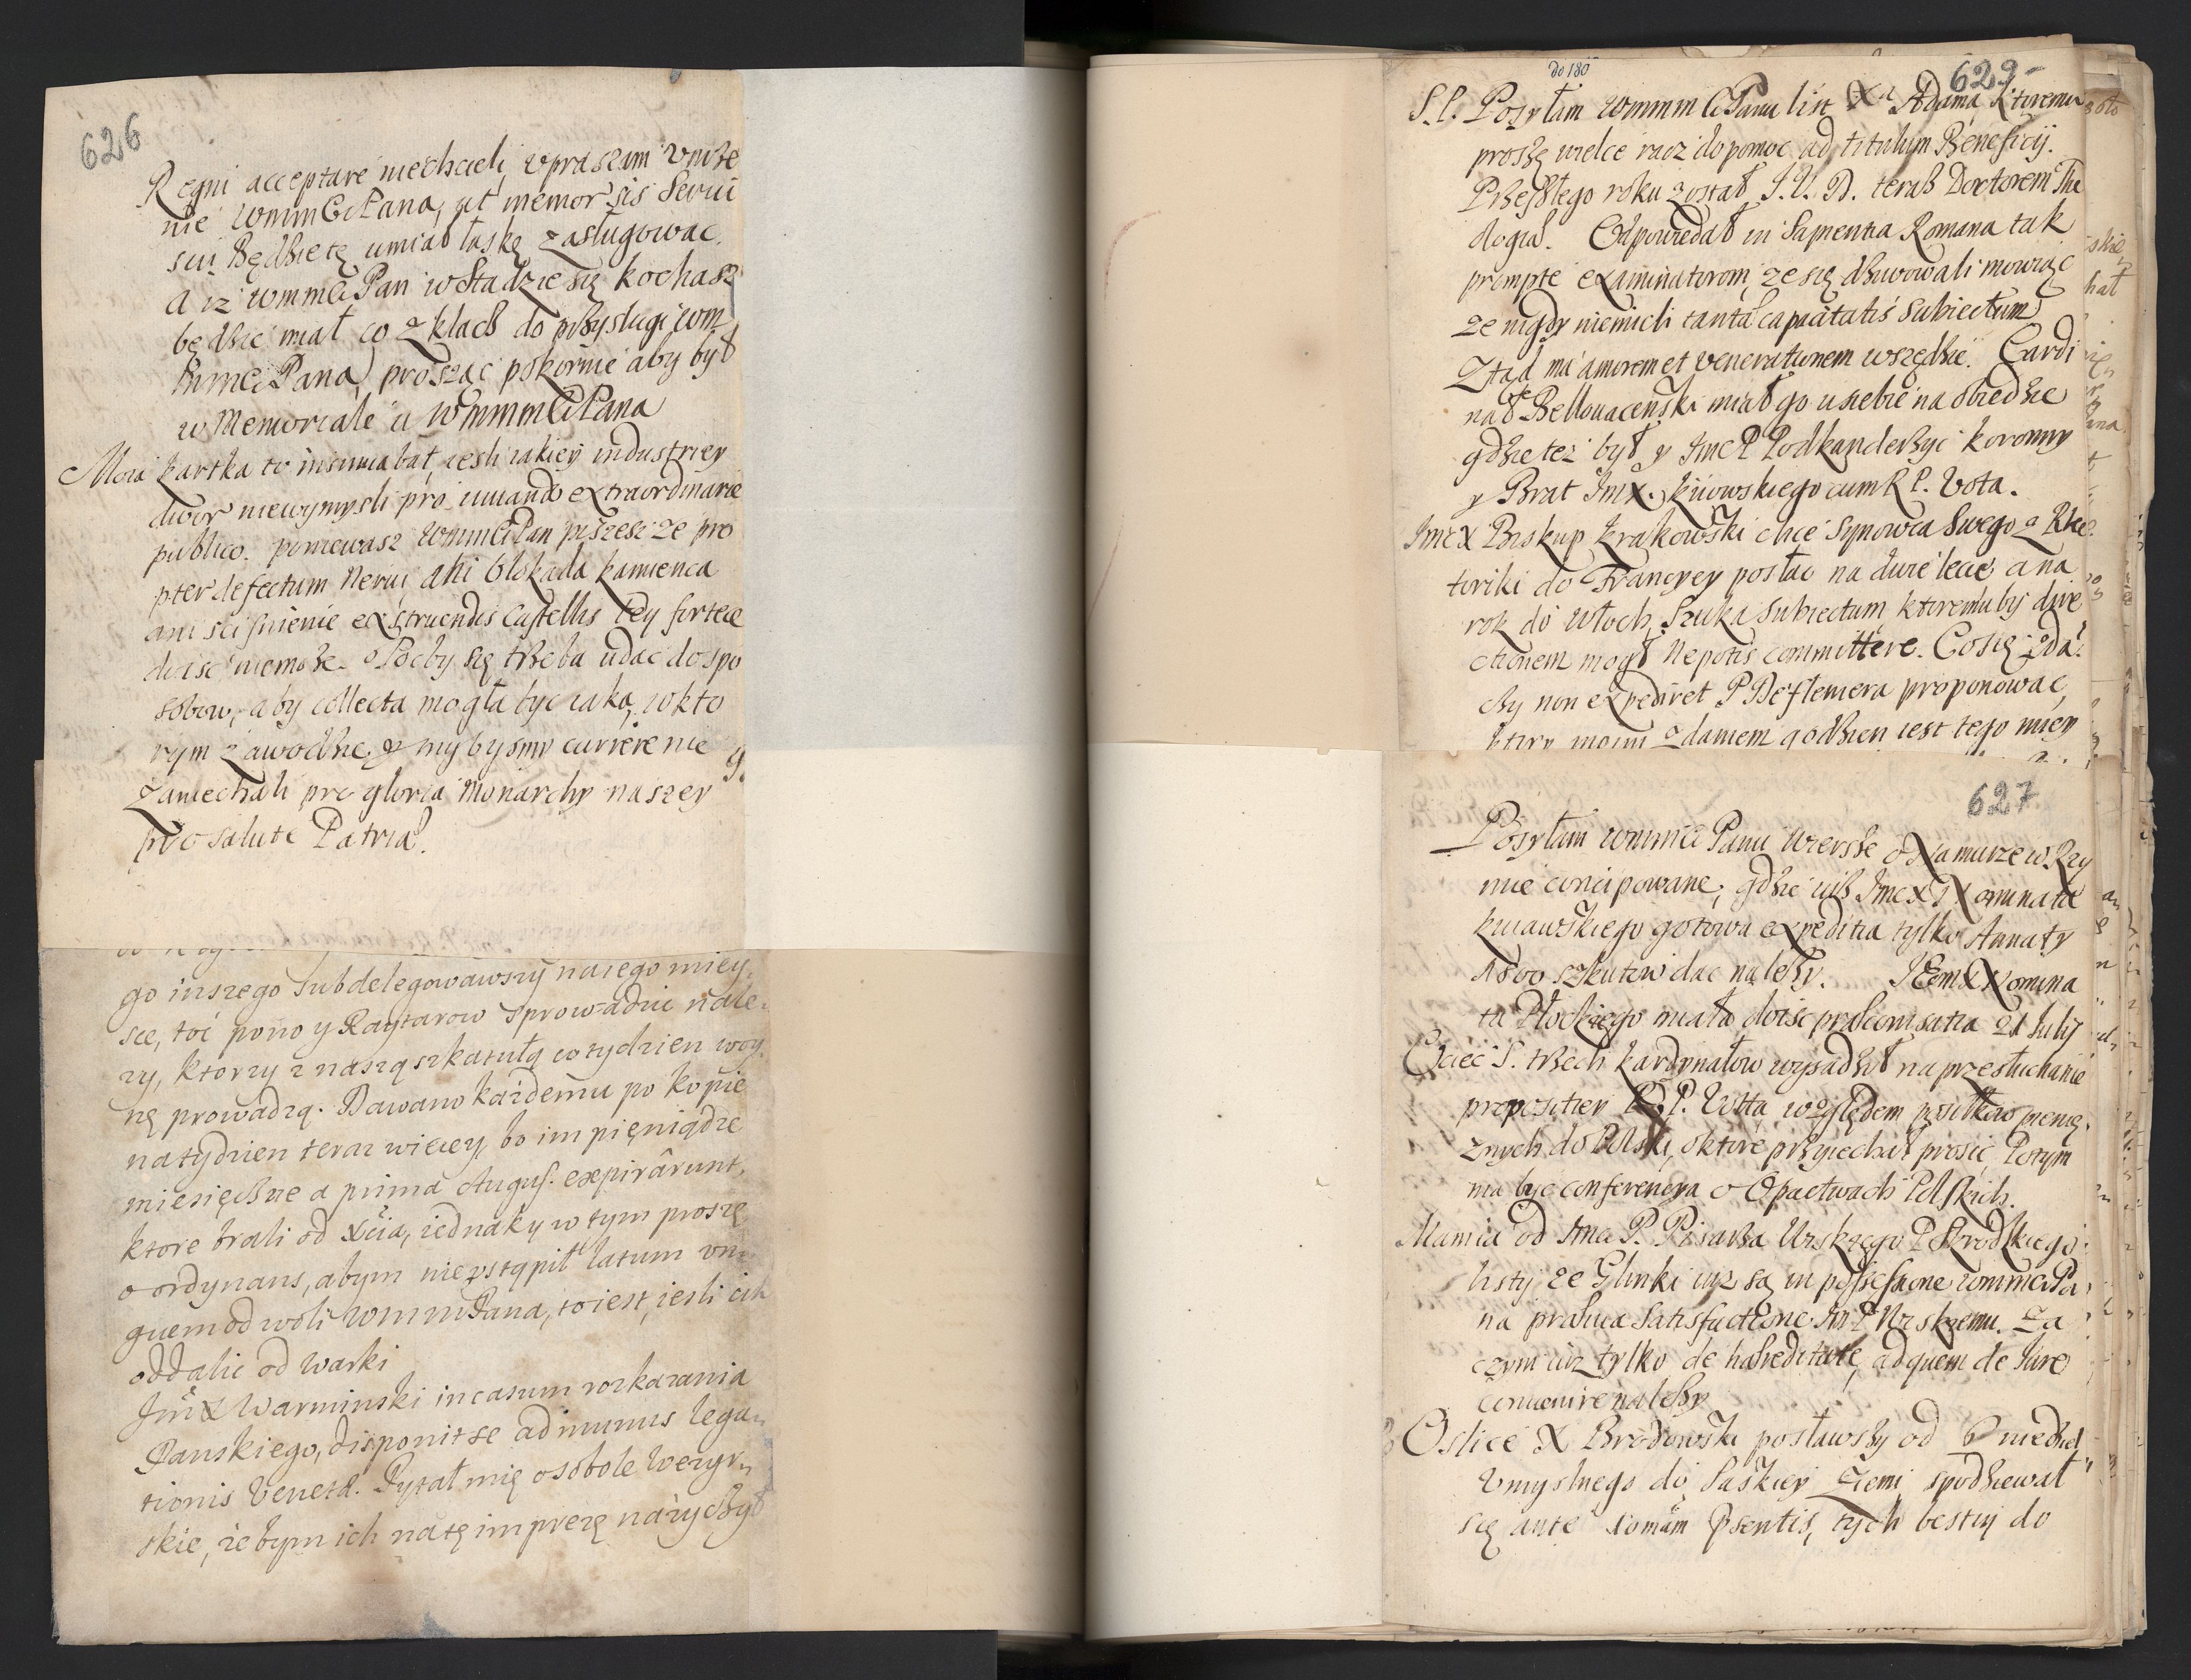 626
Regni acceptare niechcieli, vpraszam vniże
nie WmmCiPana, ut memor sis Servi
sui Będzietę umiał łaskę zasługowac.
A iz WmmCi Pan w Stadzie się kochasz
będzie miał co z klacz do przysługi wm
PmmCiPana, prosząc pokornie aby był
w Memoriale u WmmmCiPana
Moia kartka to insinuabat, iesli iakiey industriey
dwor niewymysli pro iuuando extraordinarie
publico. poniewasz WmmCiPan piszesz ze pro
pter defectum Nerui, ani blokada kamienca
ani scisnienie exstruendis Castellis tey fortece
doisc niemoże. Poćby się trzeba udac do spo
sobow, aby collecta mogła byc iaka, w kto
rym zawodzie, y mybysmy carriere nie
zaniechali pro gloria Monarchy naszey
pro salute Patriæ.
go inszego subdelegowawszy na iego miey,
sce, toć pono y Raytarow sprowadzic nale,
zy, ktorzy z naszą szkatułą co tydzien woy,
nę prowadzą. Dawano każdemu po kopie
na tydzien teraz wiecey, bo im pięniądze
miesięczne a prima August. expirârunt,
ktore brali od Xcia, iednak y w tym proszę
o ordynans, abym nie vstąpił latum vn,
guem od woli WmmPana, to iest, iesli ich
oddalic od Warki
Jm X Warminski in casum rozkazania
Pańskiego, disponit se ad munus lega,
tionis Venetæ. Pytał mię o sobole Wezyr,
skie, żebym ich na tę imprezę narychył
do 180
629
S.P. Posyłam WmmmCiPanu list Xa Adama, ktoremu
proszę wielce racz dopomoc ad titulum Beneficij.
Przeszłego roku został J.U.D. teraz Doctorem The
ologiæ. Odpowiedał in Sapientia Romana tak
prompte examinatorom, ze się dziwowali mowiąc
ze nigdy niemieli tantæ capacitatis subiectum
Ztąd ma amorem et venerationem wszędzie. Cardi
nał Bellouacenski miał go u siebie na obiedzie
gdzie też był y Jmc P Podkanclerzyc koronny
y Brat Jm X. kiiowskiego cum R P. Vota.
Jmc X Biskup krakowski chce synowca Swego z Rhe
toriki do Francyey posłac na dwie lecie a na
rok do Włoch, Szuka subiectum ktoremuby dire
ctionem mogł Nepotis committere. Co się zda.
czy non expediret P Deflemera proponowac,
ktory moim zdaniem godzien iest tego miey
627
Posyłam WmmCi Panu wiersze o Namurze w Rzy
mie concipowane, gdzie iusz Jmc X Nominata
kuiawskiego gotowa expeditia tylko Annaty
1800 szkutow dac należy. JEm X Nomina
ta Płockiego miała doisc præconisatia 21 Julij
Ociec S. trzech kardynałow wysadził na przesłuchanie
propositiey R. P. Votta względem posiłkow pienię,
żnych do Polski, o ktore przyiechał prosic, Potym
ma byc conferencya o Opactwach Polskich.
Mamia od Jmci P. Pisarza Urskiego P Skrodzkiego
listy, ze Glinki iuz są in possessione WmmCiPa
na præuia satisfactione Im P Urskiemu. Za
czym iuz tylko de hæreditate, ad quem de Iure
conuenire należy
Oslice X Brodowski posławszy od 6 niedziel
vmyslnego do Saskiey Ziemi spodziewał
się ante Nonam Præsentis, tych bestiy do